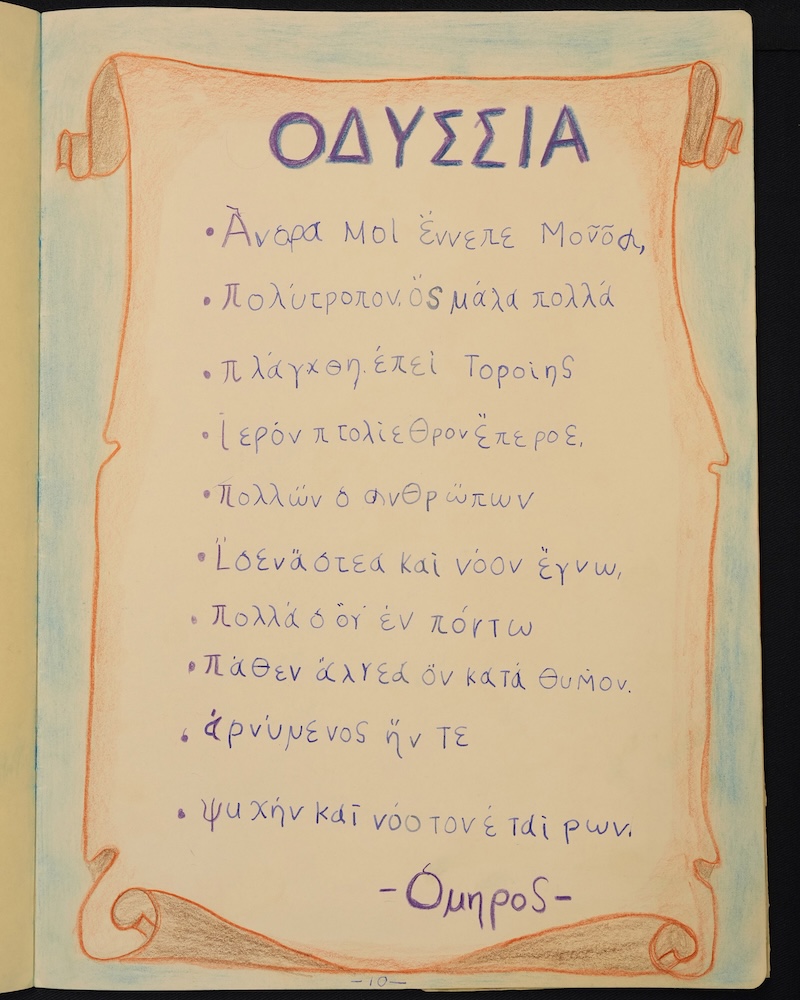 ΟΔΥΣΣΙΑ
• Ἂνδρα μοι ἔννεπε Μοῦσα,
• Πολύτροπον, ὅς μάλα πολλά
• πλάγχθη. ἐπεὶ Τοροίης
• Ἱερόν πτολίεθρον ἔπερσε,
• Πολλῶν δ ἀνθρώπων
• Ἴδεν ἄστεα καὶ νόον ἔγνω,
• Πολλά δ ὅγ ἐν πόντω
• πάθεν ἄλγεα ὅν κατά θυμόν.
• ἀρνύμενος ἥν τε
• ψυχήν καῖ νόστον ἑταὶρων.
-Όμηρος-
-10-